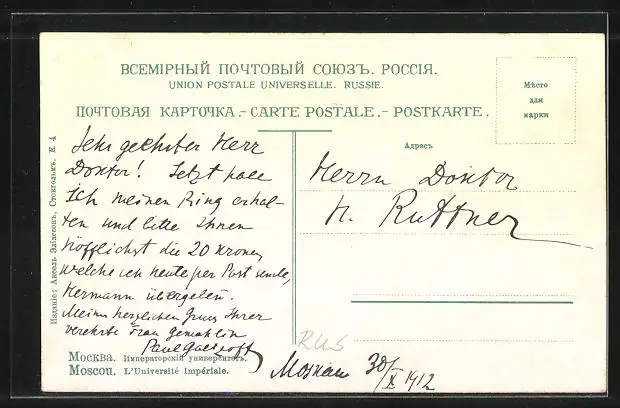 ВСЕМІРНЫЙ ПОЧТОВЫЙ СОЮЗЪ. РОССІЯ.
UNION POSTALE UNIVERSELLE. RUSSIE.
ПОЧТОВАЯ КАРТОЧКА.- CARTE POSTALE.- POSTKARTE.
Мѣсто
для
марки
Адресъ
Sehr geehrter Herr
Doktor! Jetzt habe
Ich meinen Ring erhal-
ten und bitte Ihnen
höfflichst die 20 Kronen,
welche ich heute per Post sende,
Hermann übergeben.
Meine herzlichen Gruss Ihrer
verehrte Frau gemahlin
Paul
Herrn Doktor
N. Ruttner
Москва. Императорскій университетъ.
Moscou. L'Université Impériale.
Изданіе: Аксель Эліассонъ, Стокгольмъ. К 4
RUS
Moskau 30/X 1912